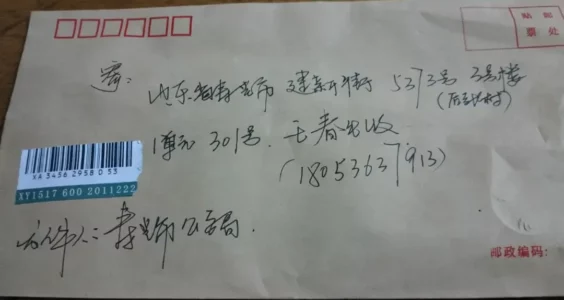 贴 邮
票 处
寄: 山东省寿光市 建新街 5373号 3号楼
1单元 301号. 王春光收
(18053637913)
XA 3456 2958 0 53
XY1517 600 2011222
寄件人: 寿光市公安局.
邮政编码: